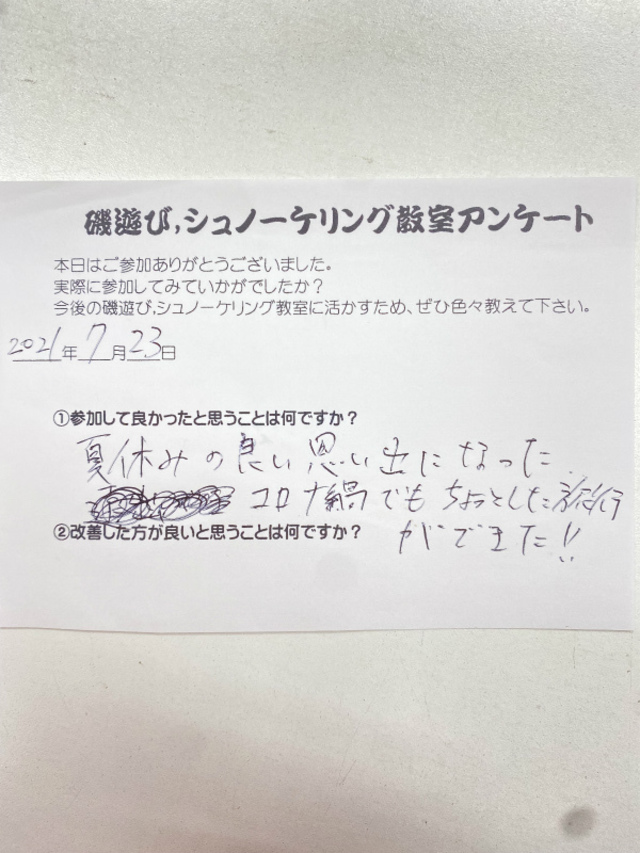 磯遊び,シュノーケリング教室アンケート
本日はご参加ありがとうございました。
実際に参加してみていかがでしたか?
今後の磯遊び,シュノーケリング教室に活かすため、ぜひ色々教えて下さい。
2021年7月23日
①参加して良かったと思うことは何ですか?
夏休みの良い思い出になった
コロナ鍋でもちょっとした旅行
②改善した方が良いと思うことは何ですか?
ができた!!